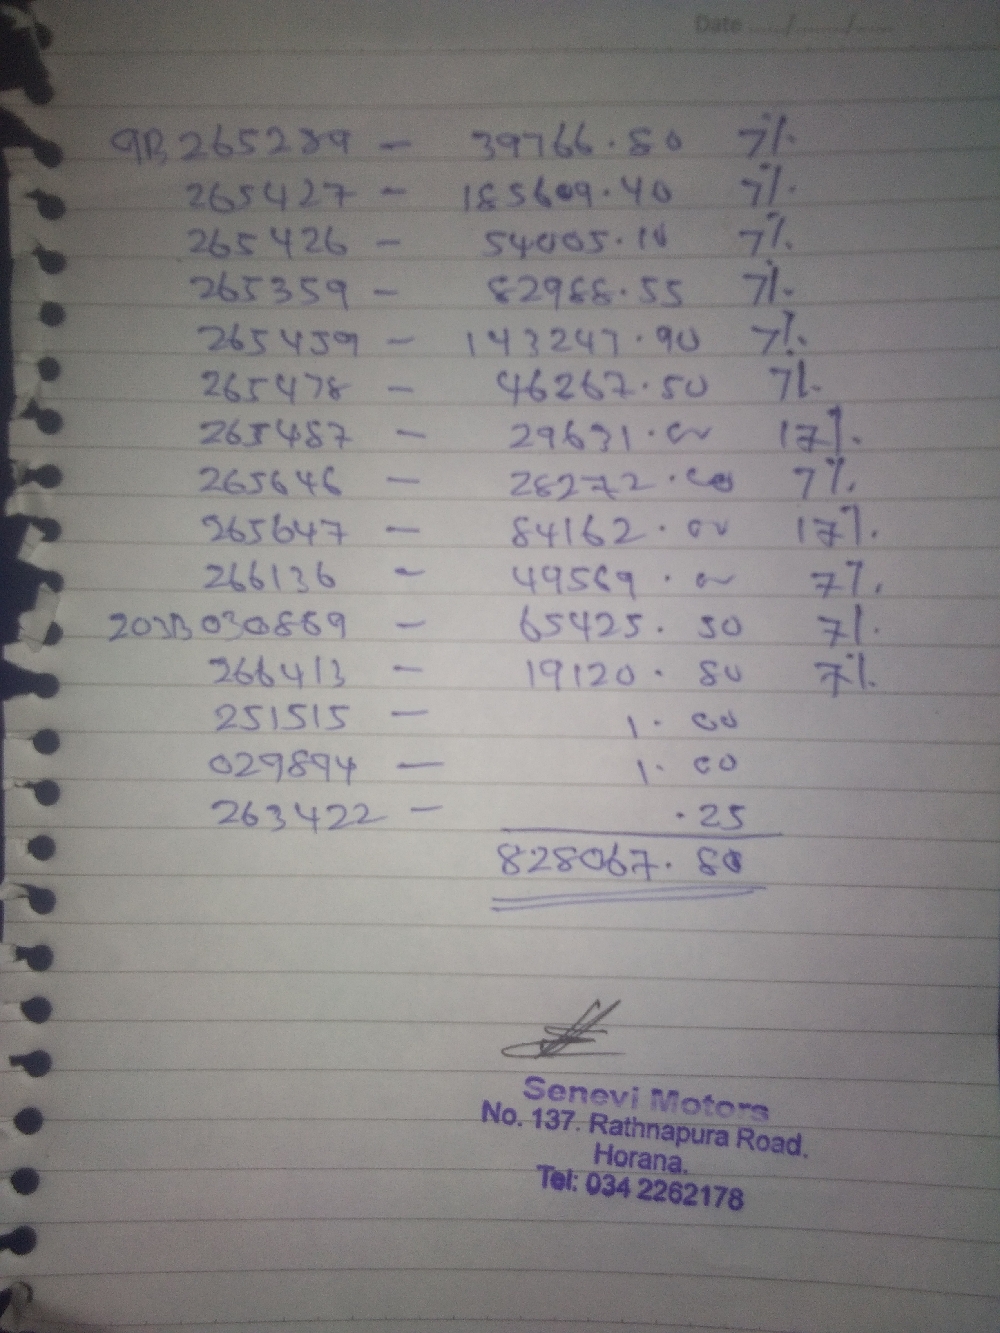 Date ..../......../........
9B 265289 - 39766.80 7%
265427 - 185609.40 7%
265426 - 54005.10 7%
265359 - 82988.55 7%
265459 - 143247.90 7%
265478 - 46267.50 7%
265487 - 29631.00 17%
265646 - 28272.00 7%
265647 - 84162.00 17%
266136 - 49569.00 7%
203B 030869 - 65425.50 7%
266413 - 19120.80 7%
251515 - 1.00
029894 - 1.00
263422 - .25
828067.80
Senevi Motors
No. 137. Rathnapura Road.
Horana.
Tel: 034 2262178